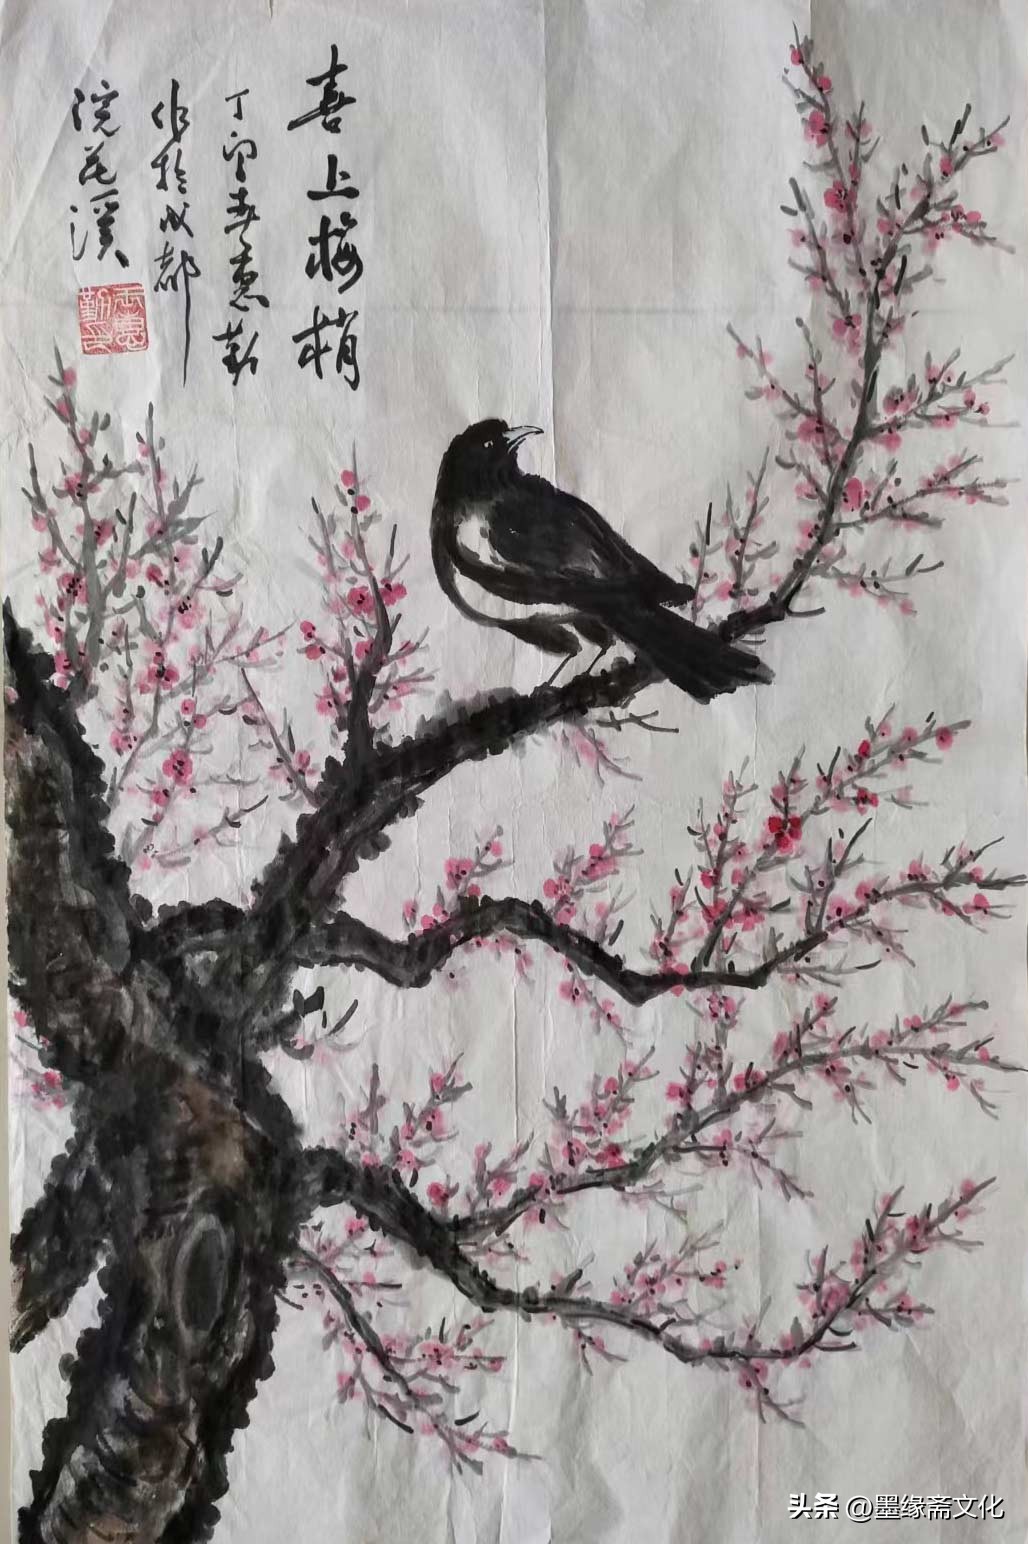 喜上梅梢
丁春惠勤
作於成都
浣花溪
头条 @墨缘斋文化